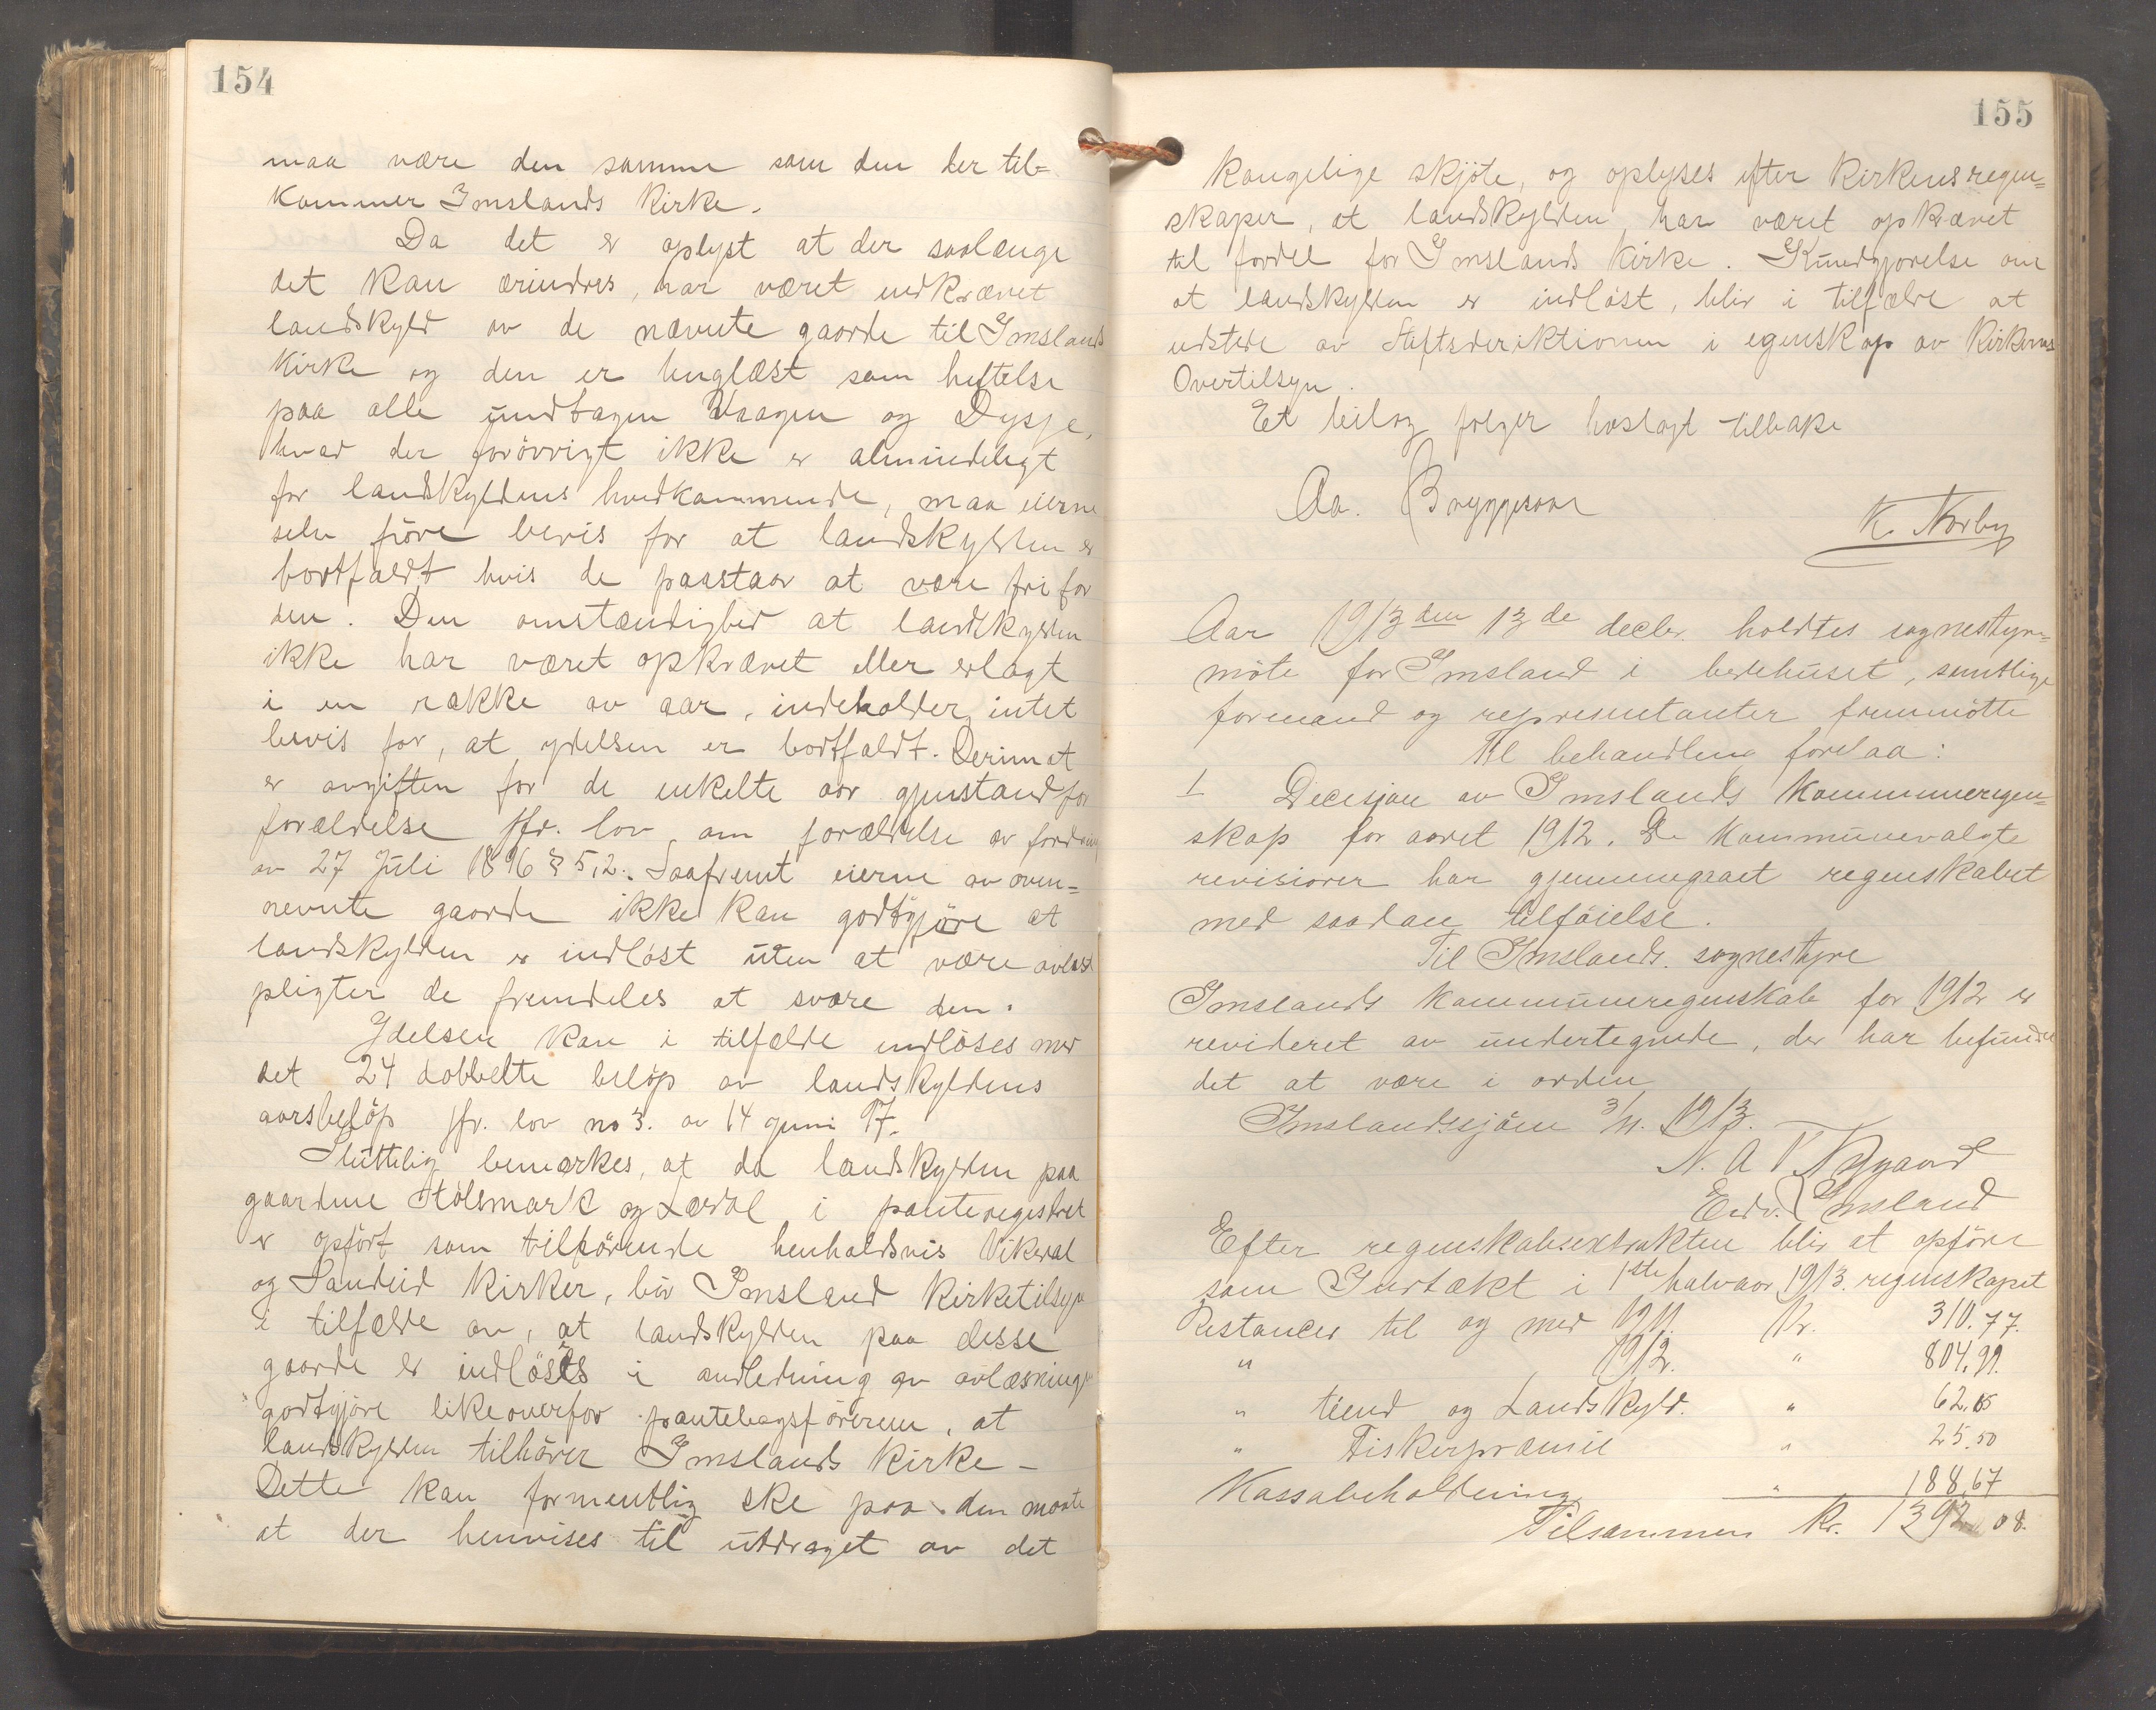 154
maa være den samme som den her til=
kommer Imslands Kirke.
Da det er oplyst at der saalænge
det kan ærindres, har været indkrævet
landskyld av de nævnte gaarde til Imslands
Kirke og den er tinglæst som heftelse
paa alle undtagen Vaagen og Dysje,
hvad der forövrigt ikke er almindeligt
for landskyldens hvedkommende, maa eierne
selv före bevis for at landskylden er
bortfaldt hvis de paastaar at være fri for
den. Den omstændighed at landskylden
ikke har været opkrævet eller erlagt
i en række av aar, indeholder intet
bevis for, at ydelsen er bortfaldt. Derimot
er avgiften for de enkelte aar gjenstand for
forældelse jfr. lov om forældelse av fordring
av 27 Juli 1896 § 5,2. Saafremt eierne av oven=
nevnte gaarde ikke kan godtgjöre at
landskylden er indlöst uten at være avlæst
pligter de fremdeles at svare den.
Ydelsen kan i tilfælde indlöses med
det 24 dobbelte belöp av landskyldens
aarsbelöp jfr. lov no 3. av 14 juni 97.
Sluttelig bemærkes, at da landskylden paa
gaardene Stölsmark og Lærdal i panteregistret
er opfört som tilhörende henholdsvis Vikedal
og Sandeid Kirker, bör Imsland Kirketilsyn
i tilfælde av, at landskylden paa disse
gaarde er indlöses i andledning av avlæsning
godtgjöre likeoverfor pantebogsföreren, at
landskylden tilhörer Imslands Kirke –
Dette kan formentlig ske paa den maate
at der henvises til utdraget av det
155
kongelige skjöte, og oplyses efter Kirkens regen=
skaper, at landskylden har været opkrævet
til fordel for Imslands Kirke. Kundgjorelse om
at landskylden er indlöst, blir i tilfælde at
udstede av Stiftsderiktionen i egenskap av Kirkernes
Overtilsyn.
Et beilag folger hoslagt tilbake
Aa. Bryggesaa
K. Norby
Aar 1913 den 13de decbr. holdtes sognestyre=
möte for Imsland i bedehuset, samtlige
formænd og representanter fremmötte
Til behandling forelaa:
1 Decisjon av Imslands Kommuneregen=
skap for aaret 1912. De Kommunevalgte
revisiorer har gjennemgaaet regenskabet
med saadan tilföielse.
Til Imslands sognestyre
Imslands Kommuneregenskab for 1912 er
revideret av undertegnede, der har befundet
det at være i orden
Imslandssjöen 3/11. 1913.
N. A. Nygaard
Edv. Imsland
Efter regenskabsextrakten blir at opföre
som Indtækt i 1ste halvaar 1913. regenskapet
Restancer til og med 1911 Kr. 310.77.
" 1912. " 804.99.
" tiend og Landskyld. " 62.15
" Fiskerpræmie " 25.50
Kassabeholdning " 188,67
Tilsammen Kr. 1392 08.